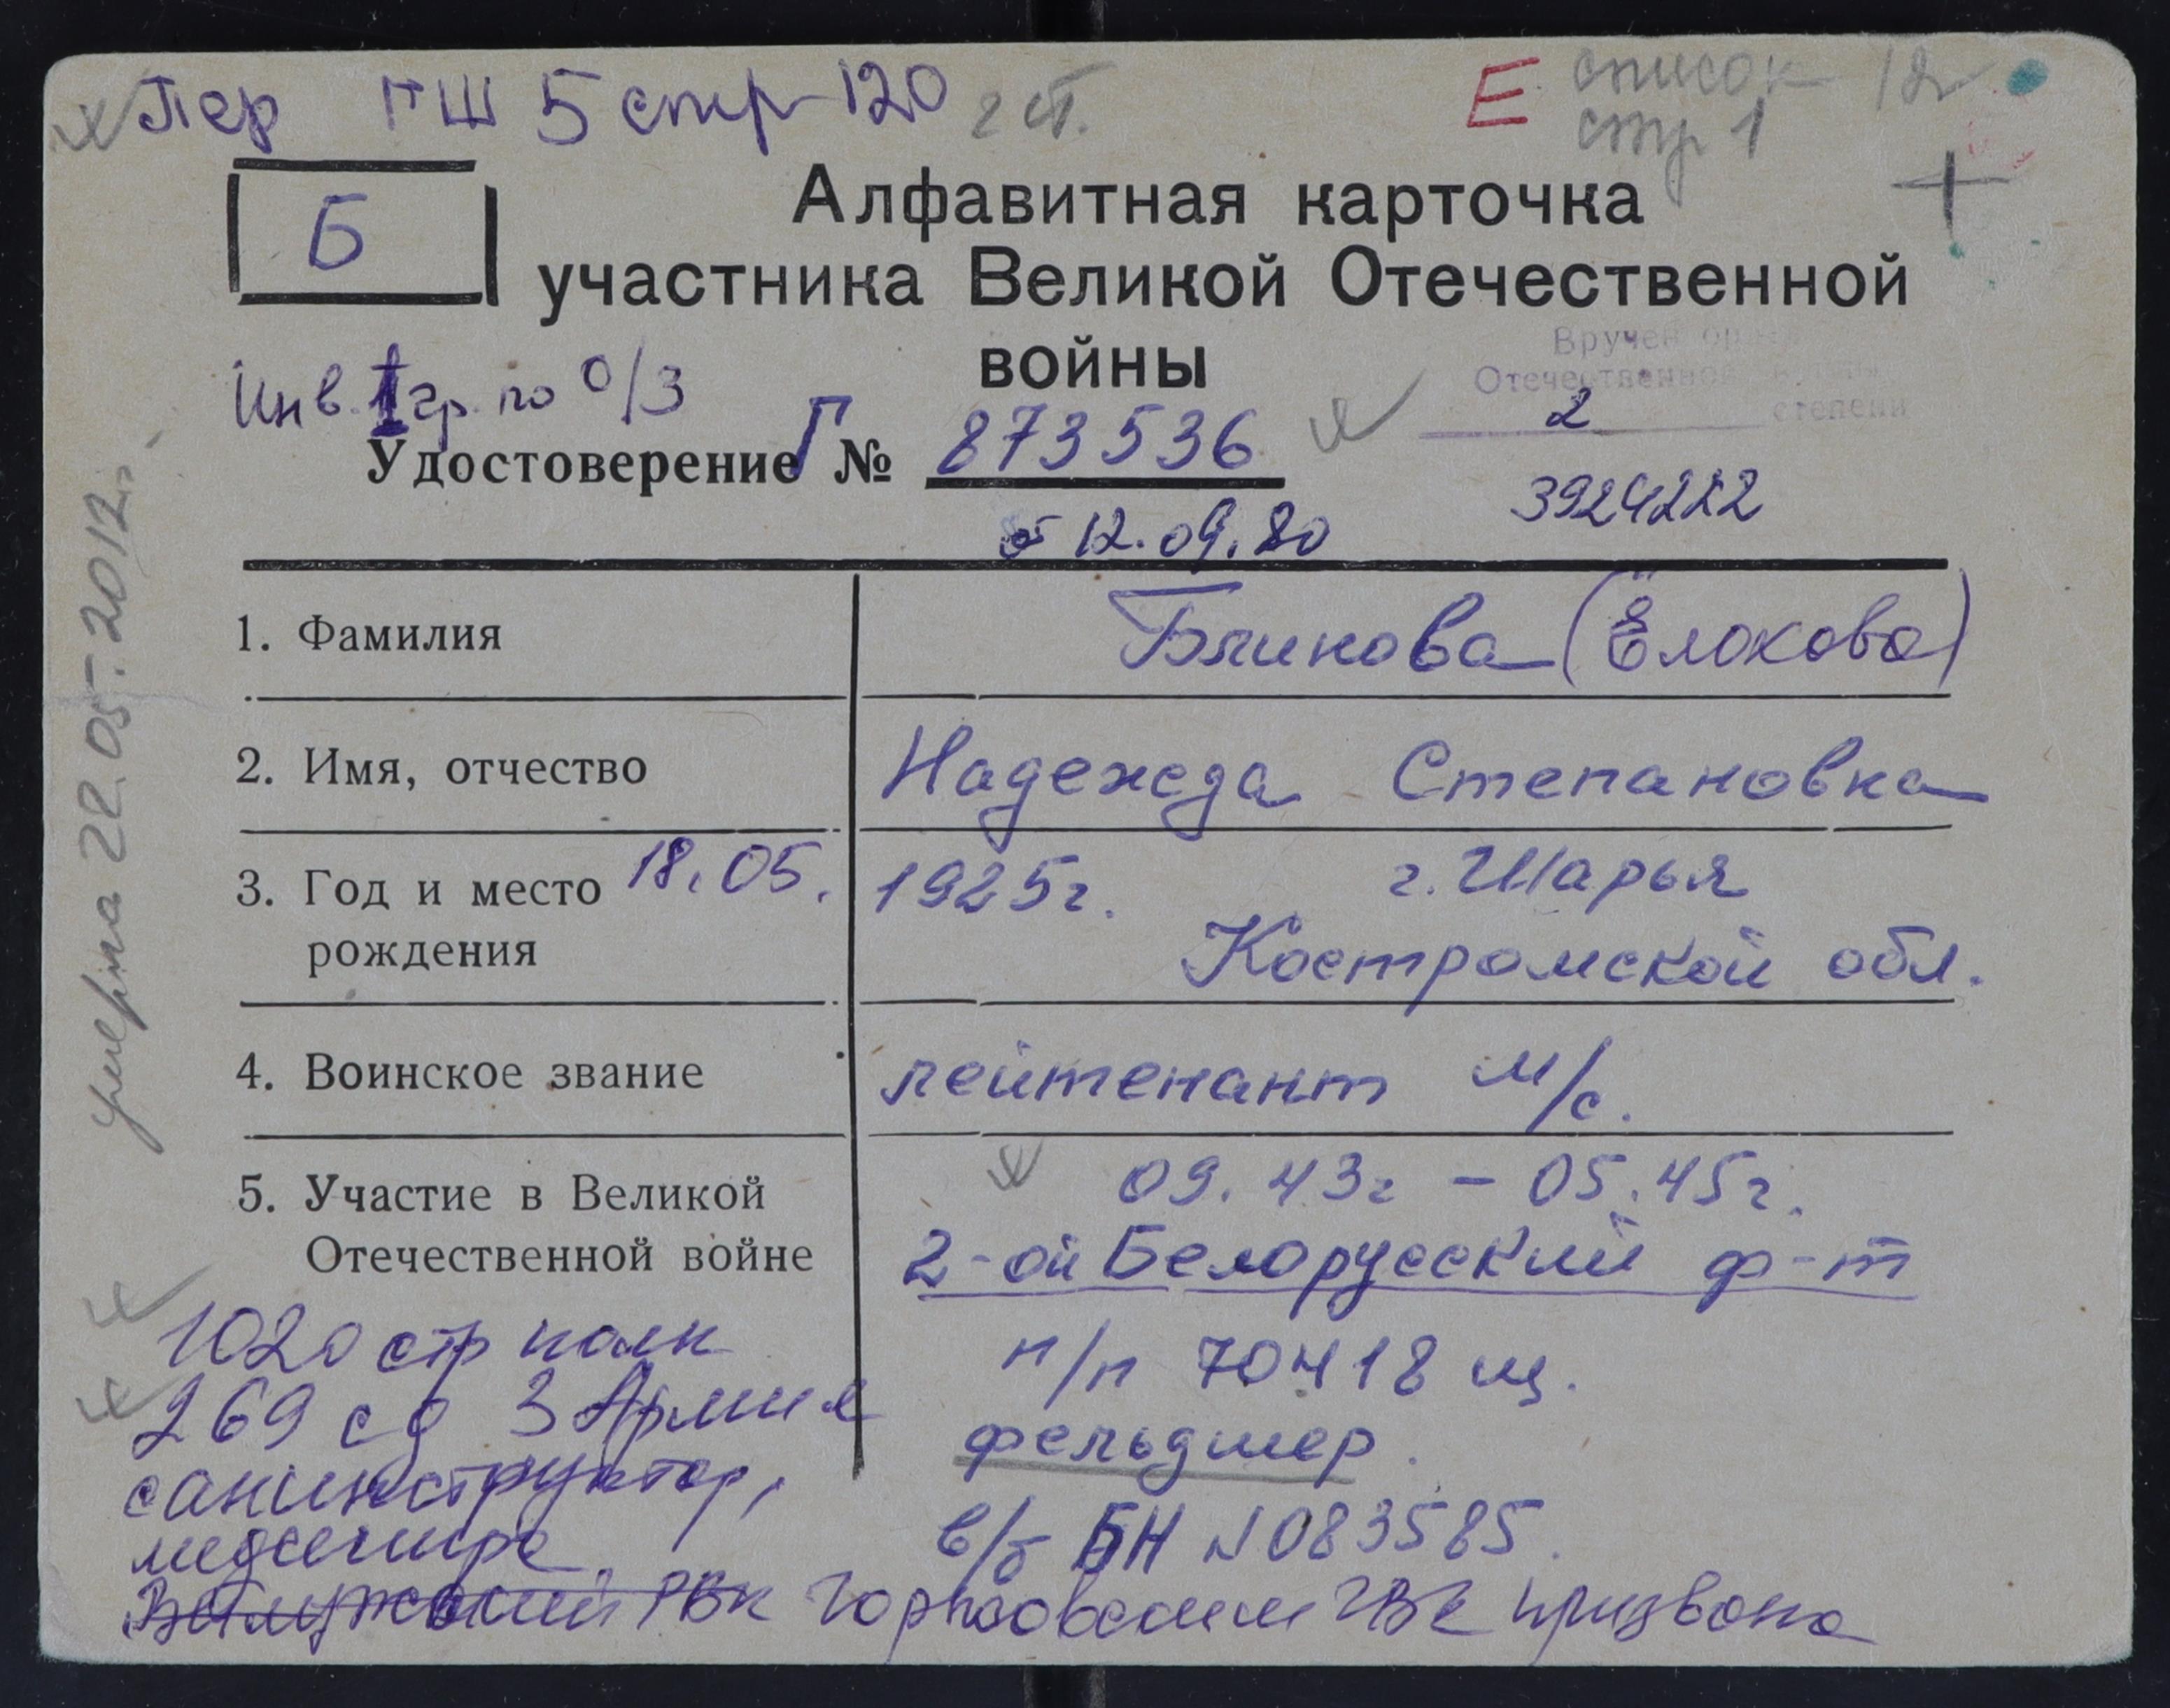 Пер ПШ 5 стр 120 2 ст.
Е список 12
стр 1
Б
Алфавитная карточка
участника Великой Отечественной
войны
Вручен орден
Отечественной войны
2 степени
3924222
Инв. I гр. по о/з
Удостоверение Г № 873536
от 12.09.80
умерла 22.05.2012г.
1. Фамилия
Блинова (Ёлохова)
2. Имя, отчество
Надежда Степановна
3. Год и место рождения
18.05. 1925г. г. Шарья
Костромской обл.
4. Воинское звание
лейтенант м/с.
5. Участие в Великой
Отечественной войне
09.43г – 05.45г.
2-ой Белорусский ф-т
п/п 70418 щ.
фельдшер.
в/б БН N 083585.
1020 стр полк
269 сд 3 Армия
санинструктор,
медсестра
РВК Горьковским ГВК призвана